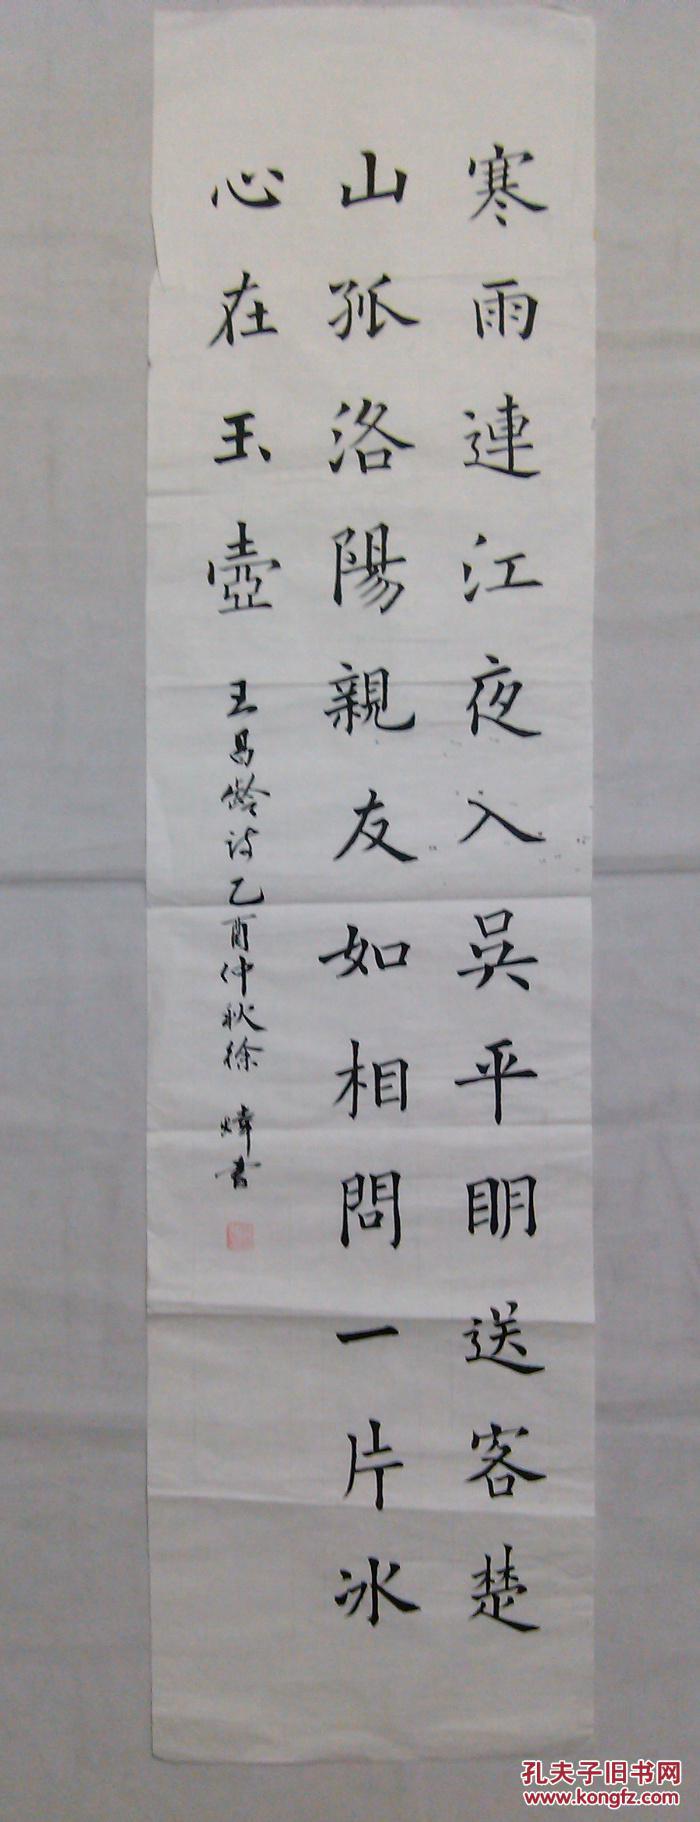 寒雨連江夜入吳平明送客楚
山孤洛陽親友如相問一片冰
心在玉壺
王昌龄诗乙酉仲秋徐煒书
孔夫子旧书网
www.kongfz.com